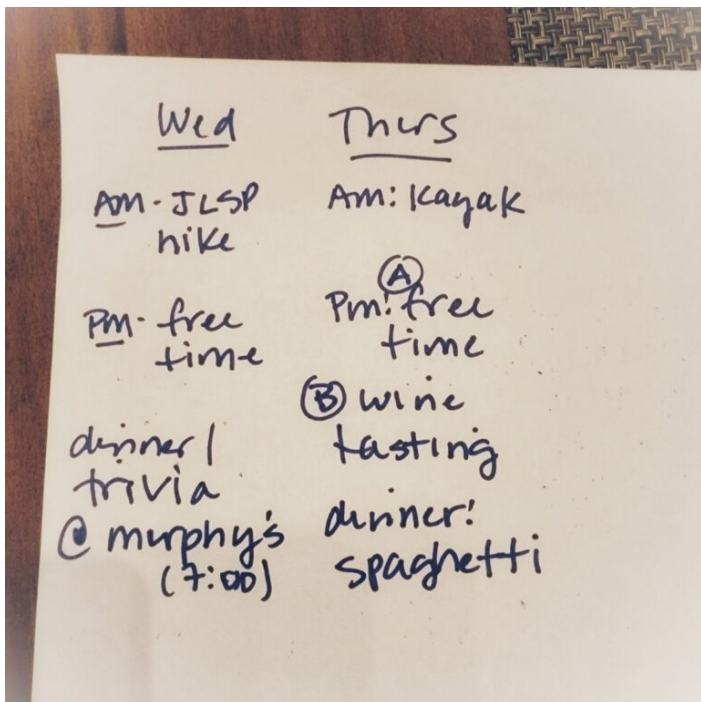 Wed
AM - JLSP
hike
PM - free
time
dinner /
trivia
@ murphy's
(7:00)
Thurs
Am: Kayak
A
Pm: free
time
B wine
tasting
dinner:
spaghetti